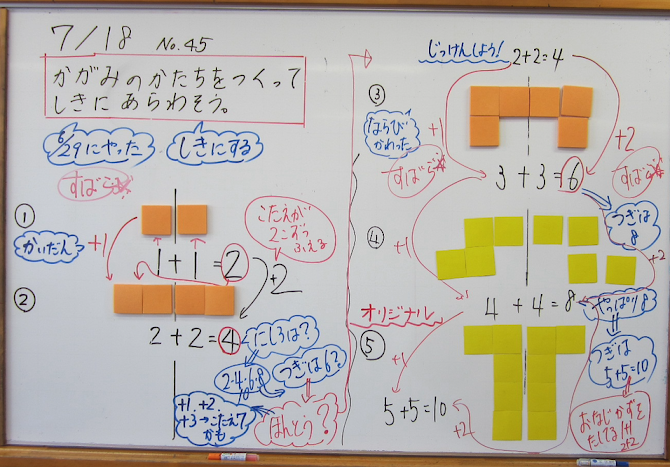 7/18 No.45
かがみのかたちをつくって
しきに あらわそう。
6/29にやった
しきにする
すばらし
①
かいだん
+1
1+1=2
+2
こたえが
2こずつ
ふえる
②
2+2=4
にしろは?
2·4·6·8
つぎは6?
ほんとう?
+1、+2、
+3→こたえ7
かも
じっけんしよう!
2+2=4
③
ならび
かわった
+1
+2
すばらし
3+3=6
すばらし
つぎは
8
④
+1
+2
オリジナル
+1
4+4=8
やっぱり8
つぎは
5+5=10
⑤
+1
5+5=10
+2
おなじかずを
たしてる 1+1
2+2